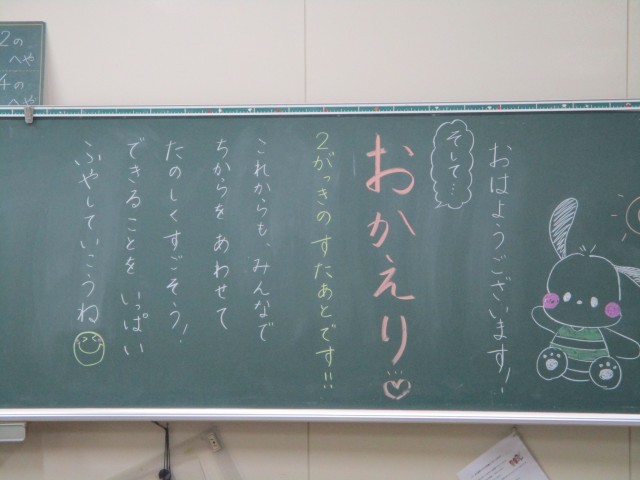 おはようございます！
そして…
おかえり…♡
2がっきのすたあとです!!
これからも、みんなで
ちからをあわせて
たのしくすごそう！
できることをいっぱい
ふやしていこうね
2の
へや
4の
へや